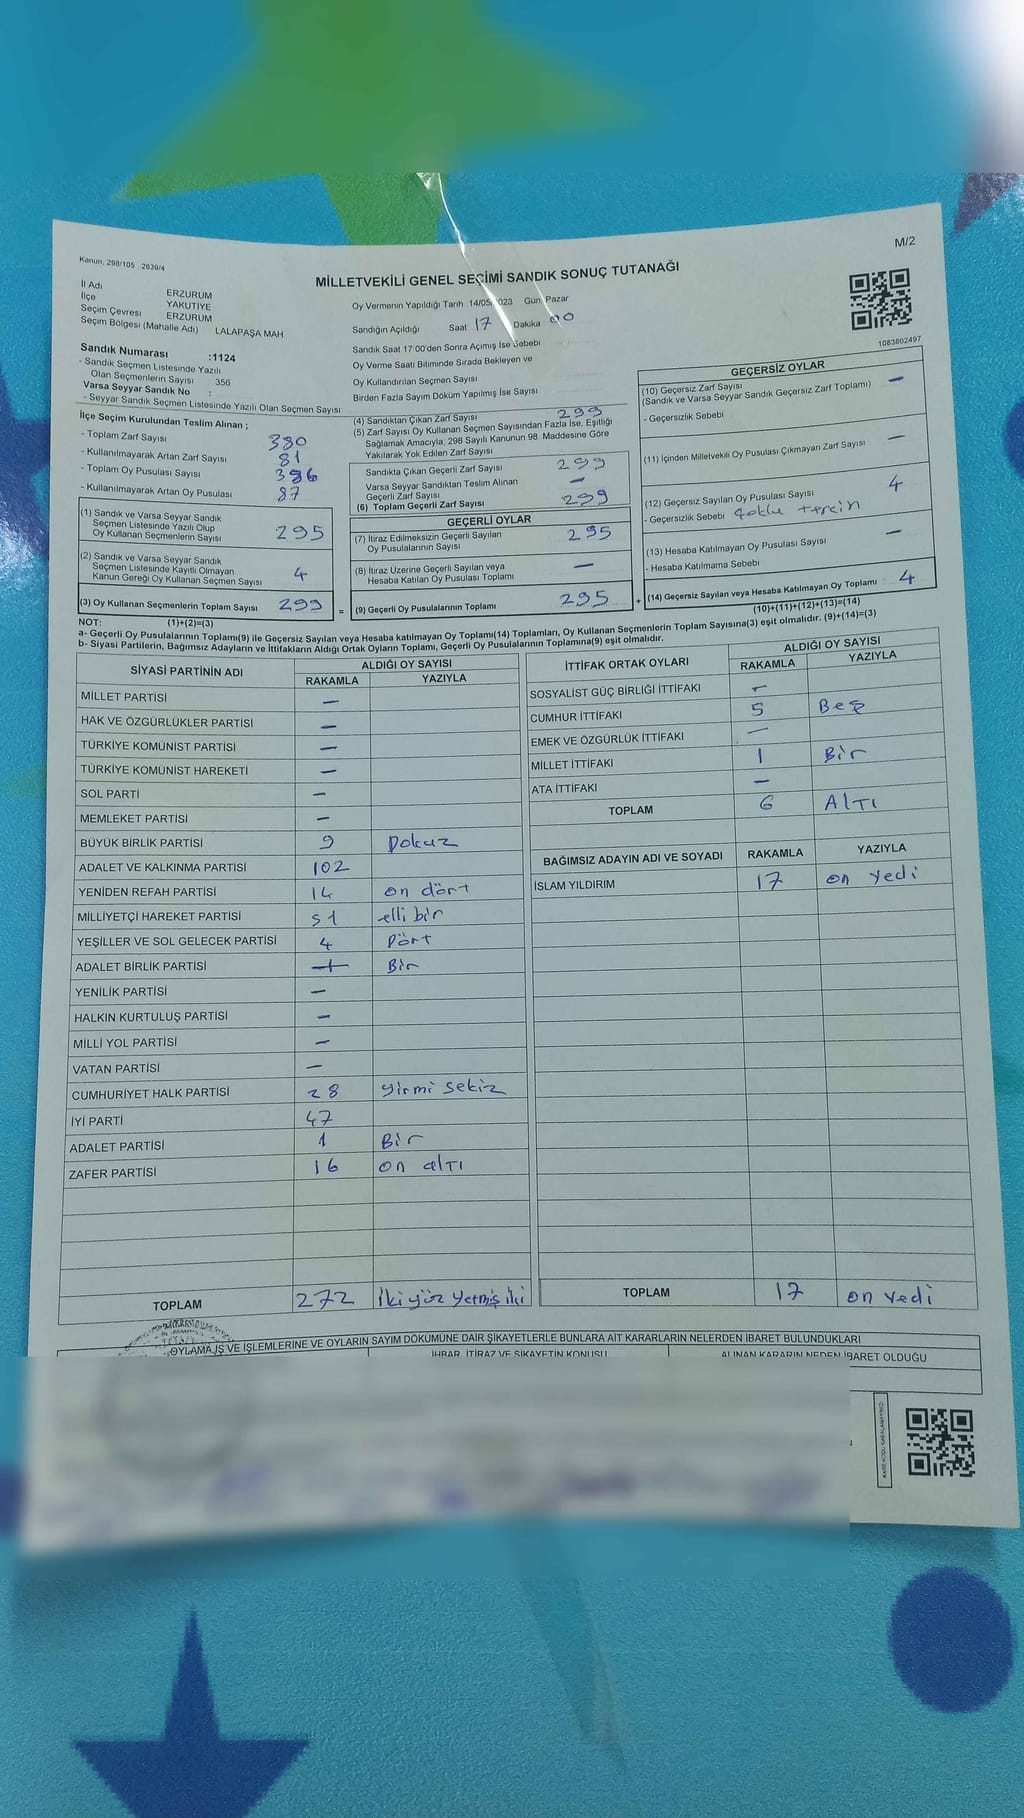 M/2
Kanun, 298/105 , 2839/4
MİLLETVEKİLİ GENEL SEÇİMİ SANDIK SONUÇ TUTANAĞI
İl Adı ERZURUM
İlçe YAKUTİYE
Seçim Çevresi ERZURUM
Seçim Bölgesi (Mahalle Adı) LALAPAŞA MAH.
Oy Vermenin Yapıldığı Tarih 14/05/2023 Gün Pazar
Sandığın Açıldığı Saat 17 Dakika 00
Sandık Saat 17:00'den Sonra Açımış İse Sebebi
Oy Verme Saati Bitiminde Sırada Bekleyen ve
Oy Kullandırılan Seçmen Sayısı
Birden Fazla Sayım Döküm Yapılmış İse Sayısı
1083802497
Sandık Numarası :1124
- Sandık Seçmen Listesinde Yazılı
Olan Seçmenlerin Sayısı 356
Varsa Seyyar Sandık No :
- Seyyar Sandık Seçmen Listesinde Yazılı Olan Seçmen Sayısı:
İlçe Seçim Kurulundan Teslim Alınan ;
- Toplam Zarf Sayısı 380
- Kullanılmayarak Artan Zarf Sayısı 81
- Toplam Oy Pusulası Sayısı 386
- Kullanılmayarak Artan Oy Pusulası 87
(1) Sandık ve Varsa Seyyar Sandık
Seçmen Listesinde Yazılı Olup
Oy Kullanan Seçmenlerin Sayısı 295
(2) Sandık ve Varsa Seyyar Sandık
Seçmen Listesinde Kayıtlı Olmayan
Kanun Gereği Oy Kullanan Seçmen Sayısı 4
(3) Oy Kullanan Seçmenlerin Toplam Sayısı 299 =
(4) Sandıktan Çıkan Zarf Sayısı 299
(5) Zarf Sayısı Oy Kullanan Seçmen Sayısından Fazla İse, Eşitliği
Sağlamak Amacıyla, 298 Sayılı Kanunun 98. Maddesine Göre
Yakılarak Yok Edilen Zarf Sayısı
Sandıkta Çıkan Geçerli Zarf Sayısı 299
Varsa Seyyar Sandıktan Teslim Alınan
Geçerli Zarf Sayısı -
(6) Toplam Geçerli Zarf Sayısı 299
GEÇERLİ OYLAR
(7) İtiraz Edilmeksizin Geçerli Sayılan
Oy Pusulalarının Sayısı 295
(8) İtiraz Üzerine Geçerli Sayılan veya
Hesaba Katılan Oy Pusulası Toplamı -
(9) Geçerli Oy Pusulalarının Toplamı 295 +
GEÇERSİZ OYLAR
(10) Geçersiz Zarf Sayısı
(Sandık ve Varsa Seyyar Sandık Geçersiz Zarf Toplamı) -
- Geçersizlik Sebebi
(11) İçinden Milletvekili Oy Pusulası Çıkmayan Zarf Sayısı -
(12) Geçersiz Sayılan Oy Pusulası Sayısı 4
- Geçersizlik Sebebi Çoklu tercih
(13) Hesaba Katılmayan Oy Pusulası Sayısı -
- Hesaba Katılmama Sebebi
(14) Geçersiz Sayılan veya Hesaba Katılmayan Oy Toplamı 4
(10)+(11)+(12)+(13)=(14)
NOT: (1)+(2)=(3)
a- Geçerli Oy Pusulalarının Toplamı(9) ile Geçersiz Sayılan veya Hesaba katılmayan Oy Toplamı(14) Toplamları, Oy Kullanan Seçmenlerin Toplam Sayısına(3) eşit olmalıdır. (9)+(14)=(3)
b- Siyasi Partilerin, Bağımsız Adayların ve İttifakların Aldığı Ortak Oyların Toplamı, Geçerli Oy Pusulalarının Toplamına(9) eşit olmalıdır.
SİYASİ PARTİNİN ADI ALDIĞI OY SAYISI
RAKAMLA YAZIYLA
MİLLET PARTİSİ -
HAK VE ÖZGÜRLÜKLER PARTİSİ -
TÜRKİYE KOMÜNİST PARTİSİ -
TÜRKİYE KOMÜNİST HAREKETİ -
SOL PARTİ -
MEMLEKET PARTİSİ -
BÜYÜK BİRLİK PARTİSİ 9 Dokuz
ADALET VE KALKINMA PARTİSİ 102
YENİDEN REFAH PARTİSİ 14 on dört
MİLLİYETÇİ HAREKET PARTİSİ 51 elli bir
YEŞİLLER VE SOL GELECEK PARTİSİ 4 Dört
ADALET BİRLİK PARTİSİ 1 Bir
YENİLİK PARTİSİ -
HALKIN KURTULUŞ PARTİSİ -
MİLLİ YOL PARTİSİ -
VATAN PARTİSİ -
CUMHURİYET HALK PARTİSİ 28 yirmi sekiz
İYİ PARTİ 47
ADALET PARTİSİ 1 Bir
ZAFER PARTİSİ 16 on altı
TOPLAM 272 İki yüz Yetmiş iki
İTTİFAK ORTAK OYLARI ALDIĞI OY SAYISI
RAKAMLA YAZIYLA
SOSYALİST GÜÇ BİRLİĞİ İTTİFAKI -
CUMHUR İTTİFAKI 5 Beş
EMEK VE ÖZGÜRLÜK İTTİFAKI -
MİLLET İTTİFAKI 1 Bir
ATA İTTİFAKI -
TOPLAM 6 Altı
BAĞIMSIZ ADAYIN ADI VE SOYADI RAKAMLA YAZIYLA
İSLAM YILDIRIM 17 on yedi
TOPLAM 17 on yedi
OYLAMA İŞ VE İŞLEMLERİNE VE OYLARIN SAYIM DÖKÜMÜNE DAİR ŞİKAYETLERLE BUNLARA AİT KARARLARIN NELERDEN İBARET BULUNDUKLARI
İHBAR, İTİRAZ VE ŞİKAYETİN KONUSU ALINAN KARARIN NEDEN İBARET OLDUĞU